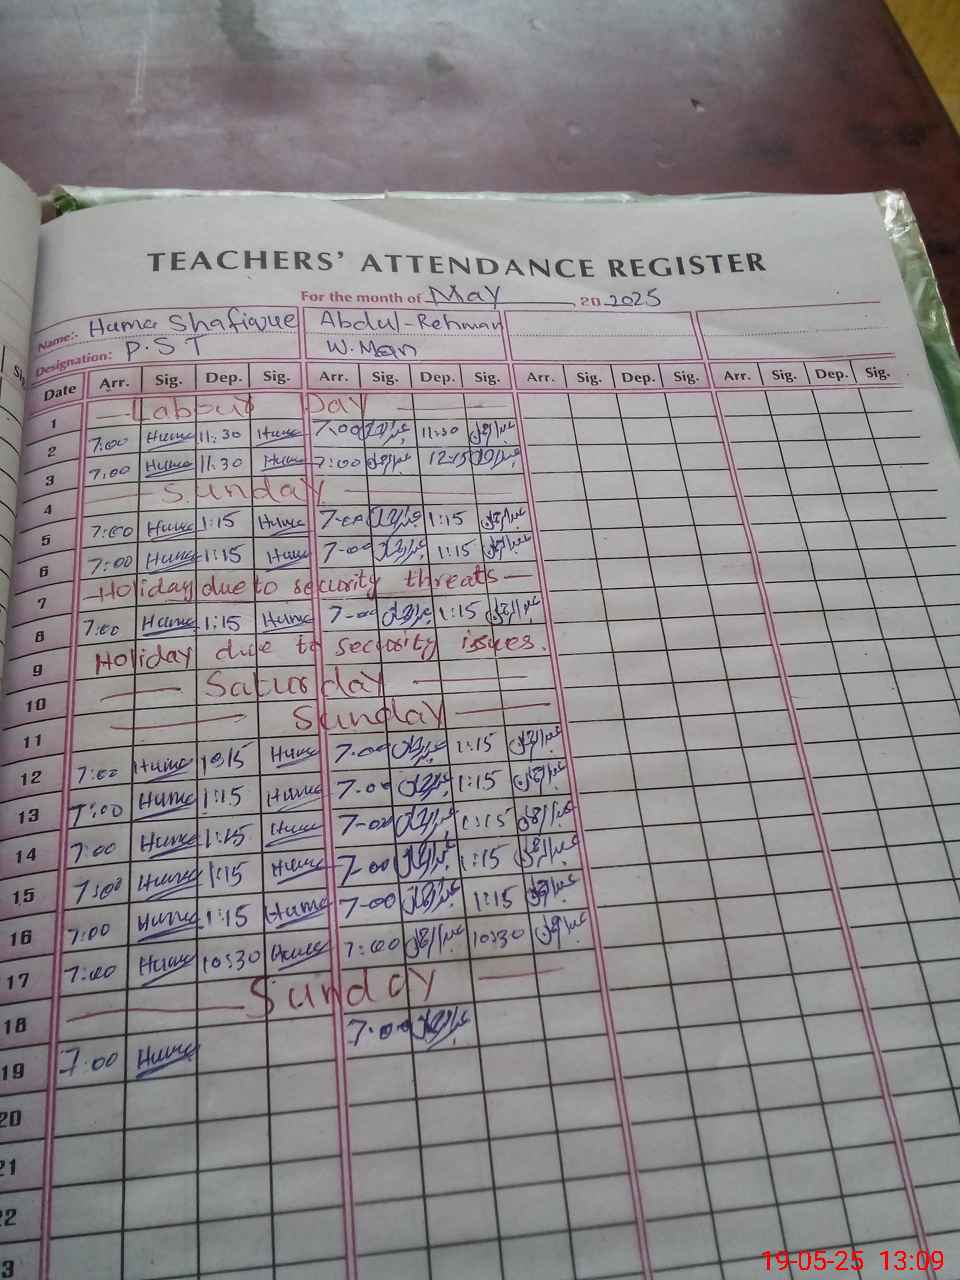 TEACHERS' ATTENDANCE REGISTER
For the month of May, 20 2025
Name:- Huma Shafique Abdul-Rehman
Designation: P.S.T W.Man
Date Arr. Sig. Dep. Sig. Arr. Sig. Dep. Sig. Arr. Sig. Dep. Sig. Arr. Sig. Dep. Sig.
1 — Labour Day —
2 7:00 Huma 11:30 Huma 7:00 11:30
3 7:00 Huma 11:30 Huma 7:00 12:15
4 — Sunday —
5 7:00 Huma 1:15 Huma 7-00 1:15
6 7:00 Huma 1:15 Huma 7-00 1:15
7 — Holiday due to security threats —
8 7:00 Huma 1:15 Huma 7-00 1:15
9 Holiday due to security issues.
10 — Saturday —
11 — Sunday —
12 7:00 Huma Huma 7-00 1:15
13 7:00 Huma 1:15 Huma 7-00 1:15
14 7:00 Huma 1:15 Huma 7-00 1:15
15 7:00 Huma 1:15 Huma 7-00 1:15
16 7:00 Huma 1:15 Huma 7-00 1:15
17 7:00 Huma 10:30 Huma 7:00 10:30
18 — Sunday —
19 7:00 Huma 7:00
20
21
22
3
19-05-25 13:09